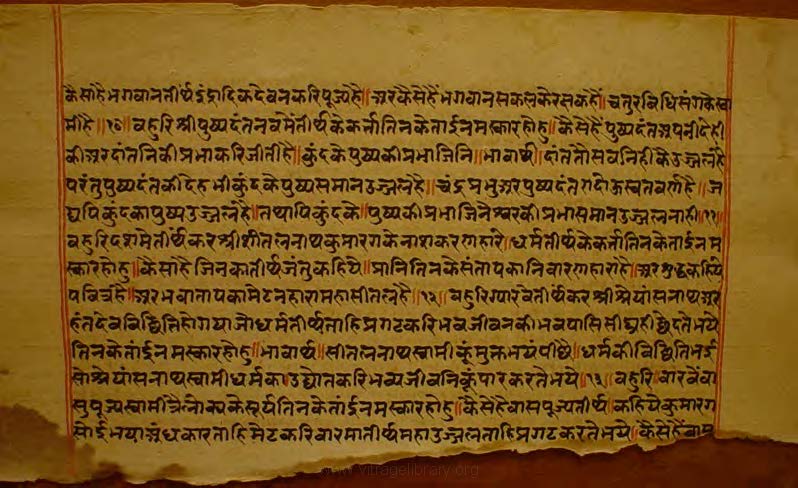 कैसा है भगवान तीर्थ इंद्रादिक देवन करि पूज्य है॥ अर कैसे हैं भगवान सकल के रक्षक हैं॥ चतुरविधि संग के स्वा
मी है॥१०॥ बहुरि श्री पुष्पदंत नवमे तीर्थ के कर्त्ता तिन के ताईं नमस्कार होहु॥ कैसे हैं पुष्पदंत अपनी देही
की अर दांतनि की प्रभा करि जीती है॥ कुंद के पुष्प की प्रभा जिनि॥ भावार्थ॥ दांत तौ सबनिही कै उज्जल है
परंतु पुष्पदंत की देह भी कुंद के पुष्प समान उज्जल है॥ चंद्रप्रभु अर पुष्पदंत ए दोऊ स्वेत वर्ण है॥ ज
द्यपि कुंद का पुष्प उज्जल है॥ तथापि कुंद के॥ पुष्प की प्रभा जिनेश्वर की प्रभा समान उज्जल नाही॥११॥
बहुरि दशमे तीर्थंकर श्री शीतलनाथ कुमारग के नाश करण हारे॥ धर्म तीर्थ के कर्त्ता तिन के ताईं नम
स्कार होहु॥ कैसा है जिन का तीर्थ जंतु कहिये॥ प्रानि तिन के संताप का निवारण हारा है॥ अर शुद्ध कहिये
पवित्र है॥ अर भवाताप का मेटनहारा महा सीतल है॥१२॥ बहुरि ग्यारवे तीर्थंकर श्री श्रेयांसनाथ अर
हंत देव विछित्ति हो गया जो धर्म तीर्थ ताहि प्रगट करि भव जीवन की भव पासि सीघ्रही छेदते भये
तिन के तांईं नमस्कार होहु॥ भावार्थ॥ सीतलनाथ स्वामी कूं मुक्त भयं पीछै॥ धर्म की विछित्ति भई
सो श्रेयांसनाथ स्वामी धर्म का उद्योत करि भव्य जीवनि कूं पार करते भये॥१३॥ बहुरि बारवें वा
सुपूज्य स्वामी त्रैलोक्य के सूर्य तिन के तांईं नमस्कार होहु॥ कैसे हैं वासपूज्य तीर्थ॥ कहिये कुमारग
सोई भया अंधकार ताहि मेट करि बारमा तीर्थ महा उज्जल ताहि प्रगट करते भये॥ कैसे हैं वास
vitragelibrary.org